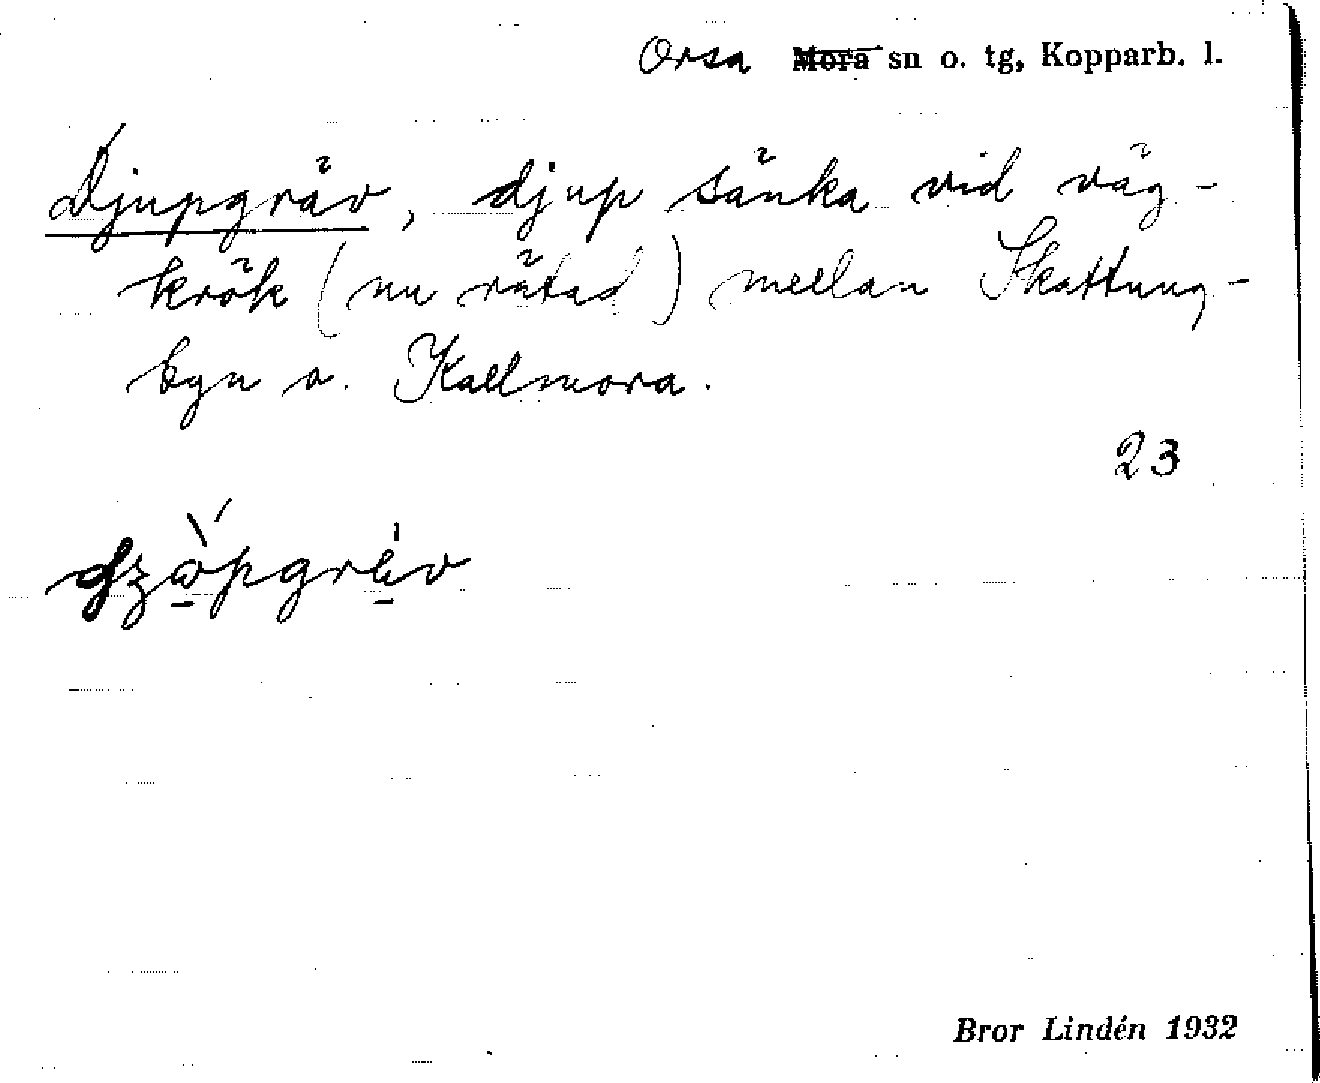 Orsa Mora sn o. tg, Kopparb. l.
Djupgräv, djup sänka vid väg-
krök (nu rätad) mellan Skattung-
byn o. Kallmora.
23
Bror Lindén 1932